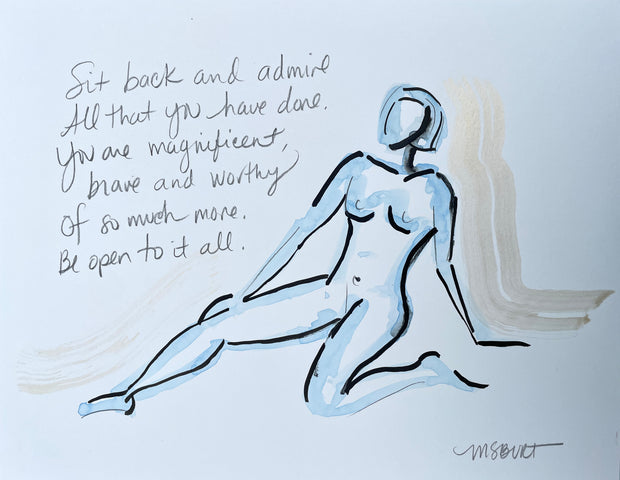 Sit back and admire
All that you have done.
You are magnificent,
brave and worthy
of so much more.
Be open to it all.
MSBURT